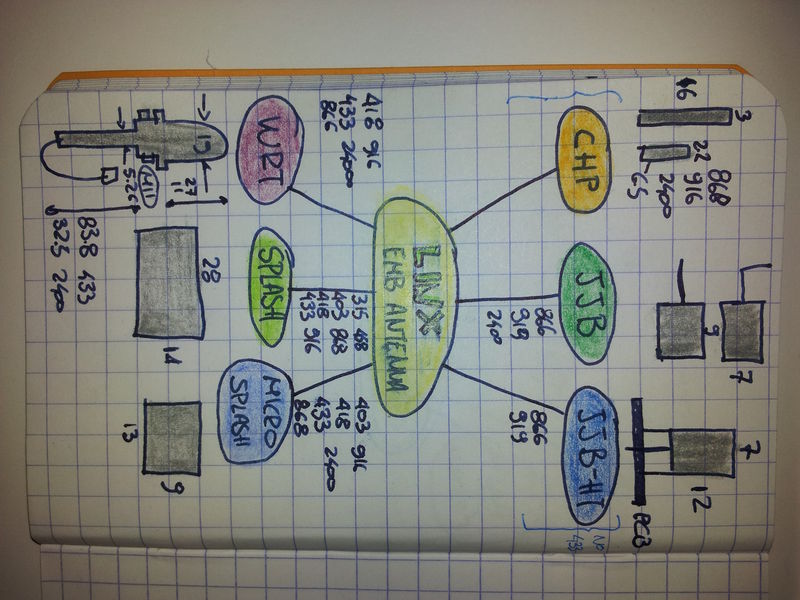 3
16
22
6.5
868
916
2400
9
7
7
12
PCB
No
433
CHP
JJB
JJB-HT
866
919
2400
866
919
LINX
EMB ANTENNA
418 916
433 2400
866
315
403 868
418
433 916
403 916
418
433 2400
868
WRT
SPLASH
MICRO
SPLASH
27
11
28
14
13
9
83.8 433
32.5 2400